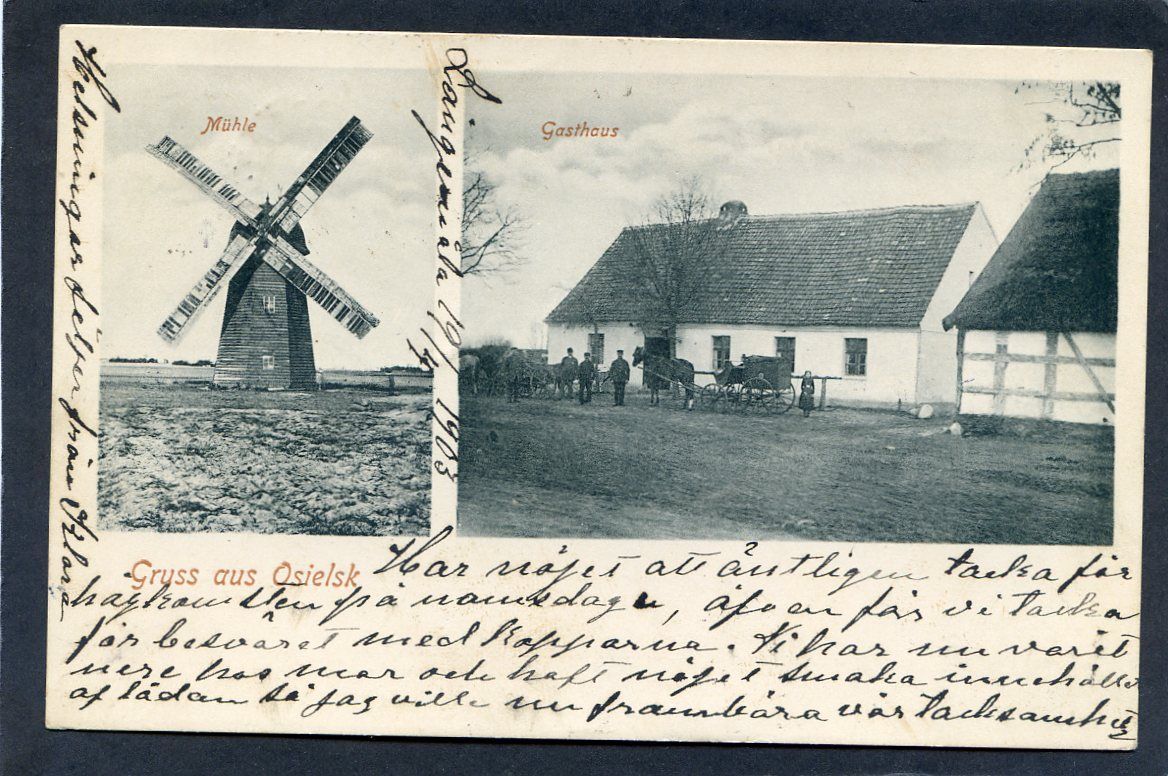 Mühle
Gasthaus
Gruss aus Osielsk
Långemåla 19/4 1903
Har nöjet att äntligen tacka för
hågkomsten på namsdagen, äfven får vi tacka
för besväret med kopparna. Vi har nu varit
nere hos mor och haft nöjet smaka innehållet
af lådan så jag ville nu frambära vår tacksamhet
Helsningar från Klara